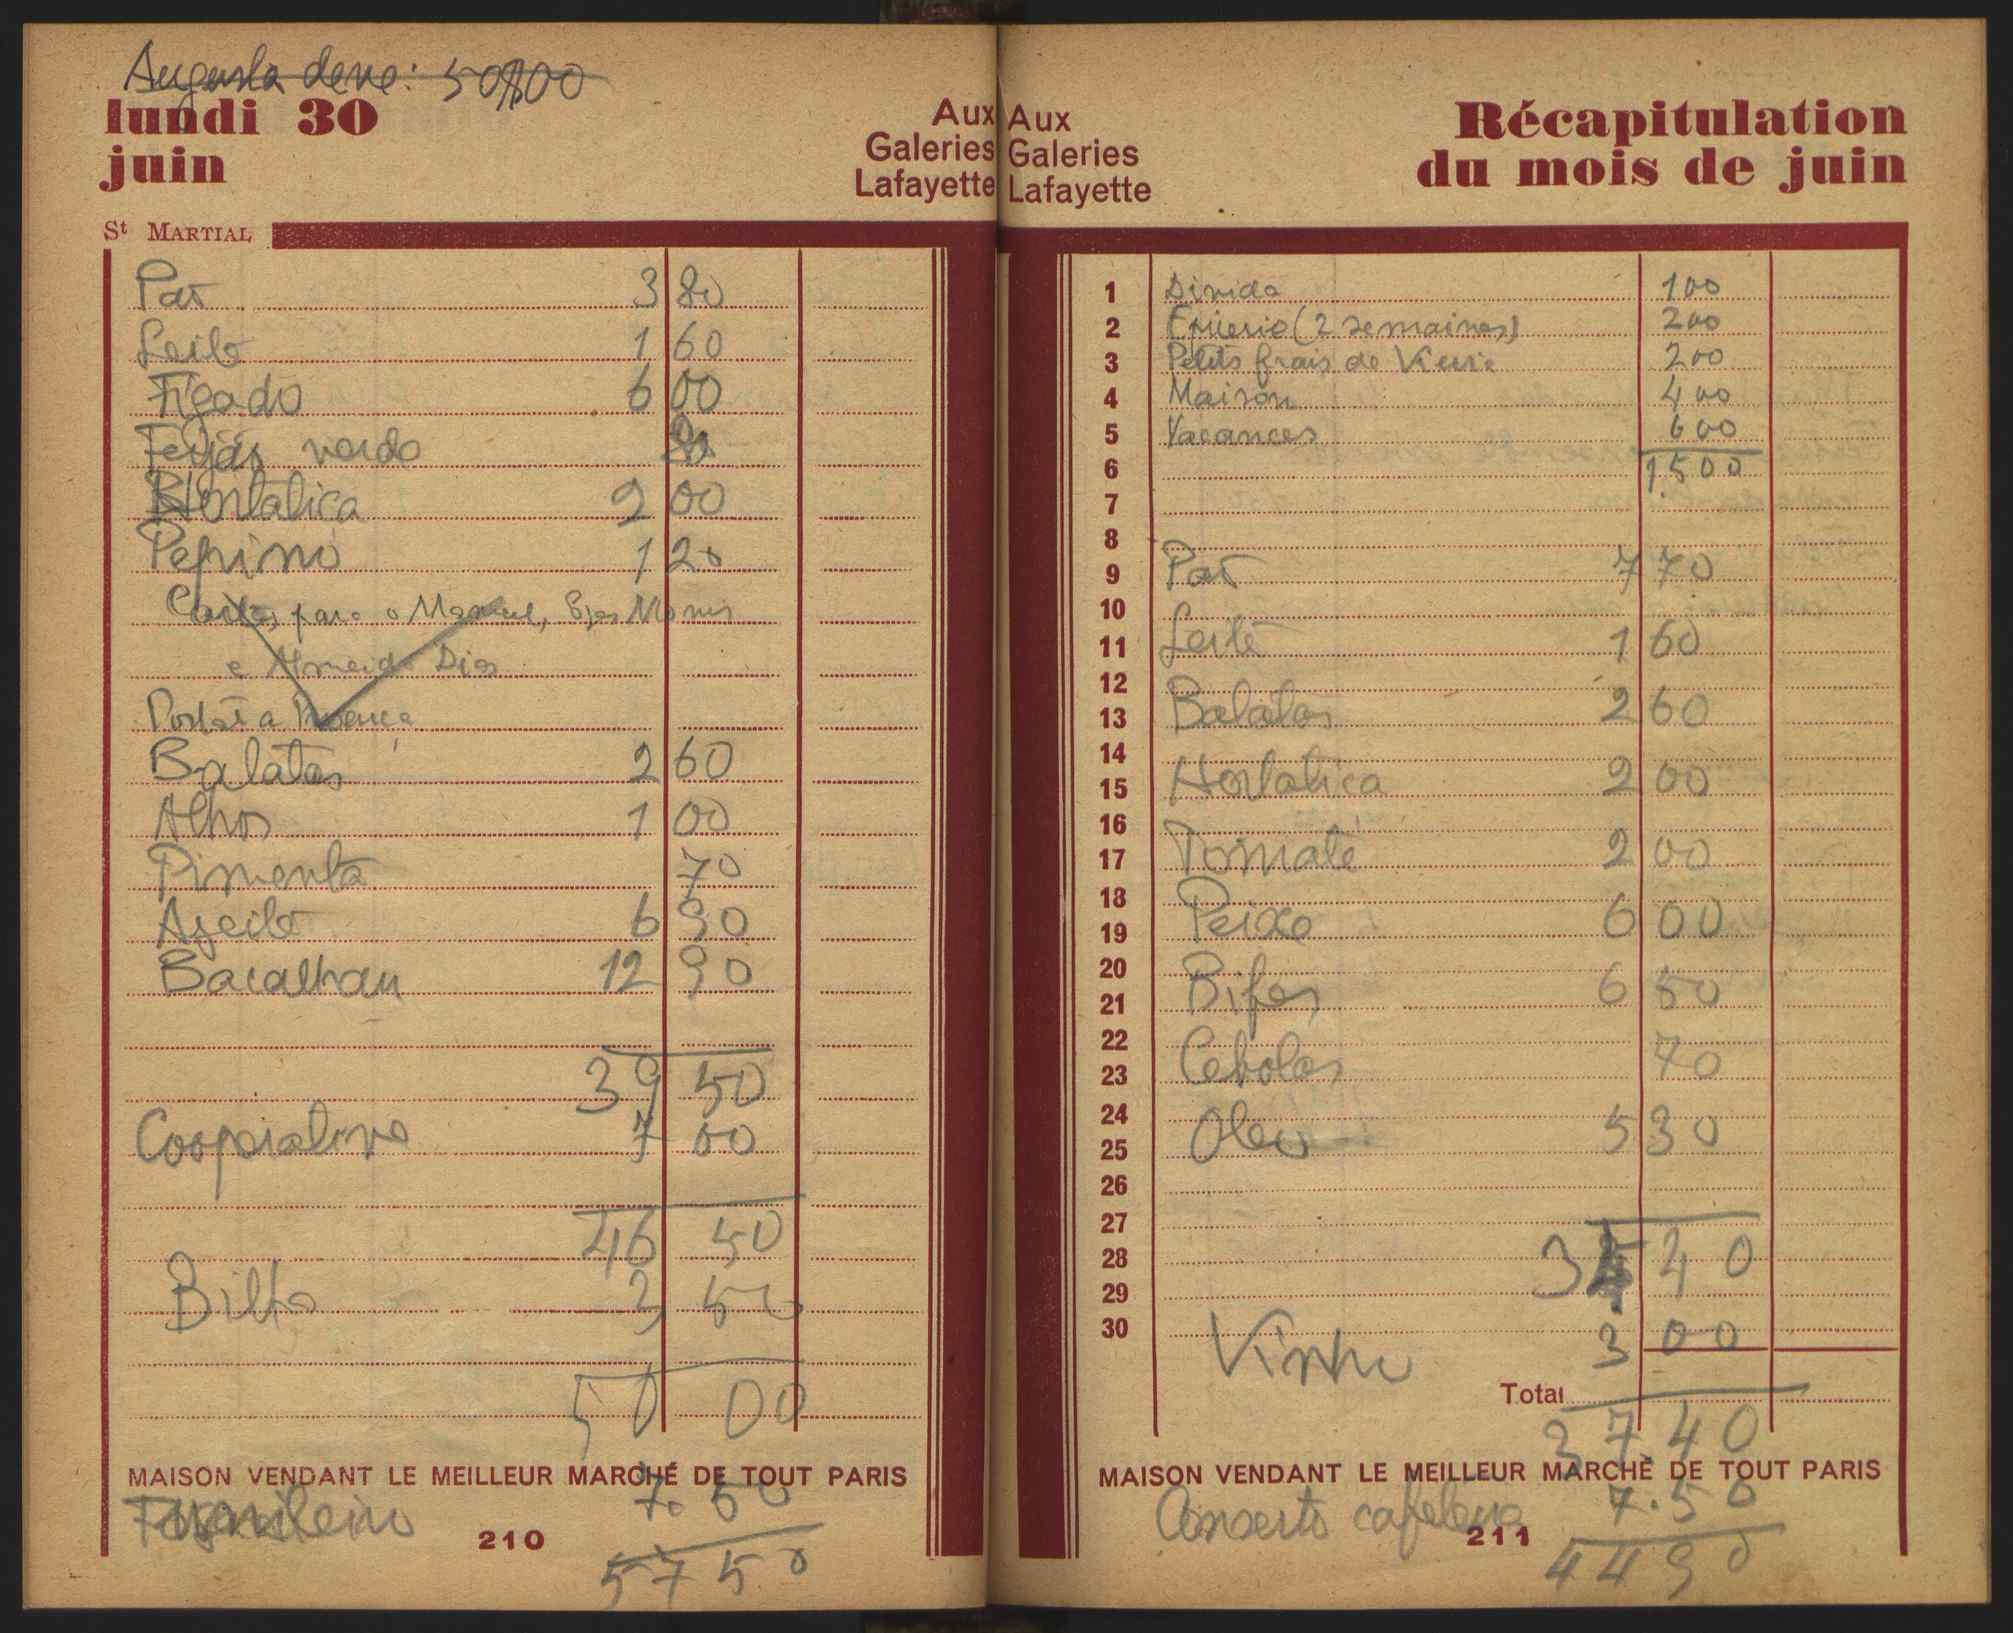 Augusta deve: 50$00
lundi 30
juin
Aux
Galeries
Lafayette
St MARTIAL
Pão 3 80
Leite 1 60
Fígado 6 00
Feijão verde 80
Hortaliça 2 00
Pepino 1 20
Cartas para o Manuel,
e Almeida Dias
Postal a Proença
Batatas 2 60
Alhos 1 00
Pimenta 70
Azeite 6 90
Bacalhau 12 90
39 50
Cooperativa 7 00
46 50
3 50
50 00
MAISON VENDANT LE MEILLEUR MARCHÉ DE TOUT PARIS
7. 50
210
57 50
Aux
Galeries
Lafayette
Récapitulation
du mois de juin
1 Divida 100
2 Epicerie (2 semaines) 200
3 Petits frais de 200
4 Maison 400
5 Vacances 600
6 1.500
7
8
9 Pão 7 70
10
11 Leite 1 60
12
13 Batatas 2 60
14
15 Hortaliça 2 00
16
17 Tomate 2 00
18
19 Peixe 6 00
20
21 Bifes 6 50
22
23 Cebolas 70
24
25 Oleo 5 30
26
27
28 34 40
29
30 Vinho 3 00
Total
37.40
MAISON VENDANT LE MEILLEUR MARCHÉ DE TOUT PARIS
Conserto cafeteira 7.50
211
44 90